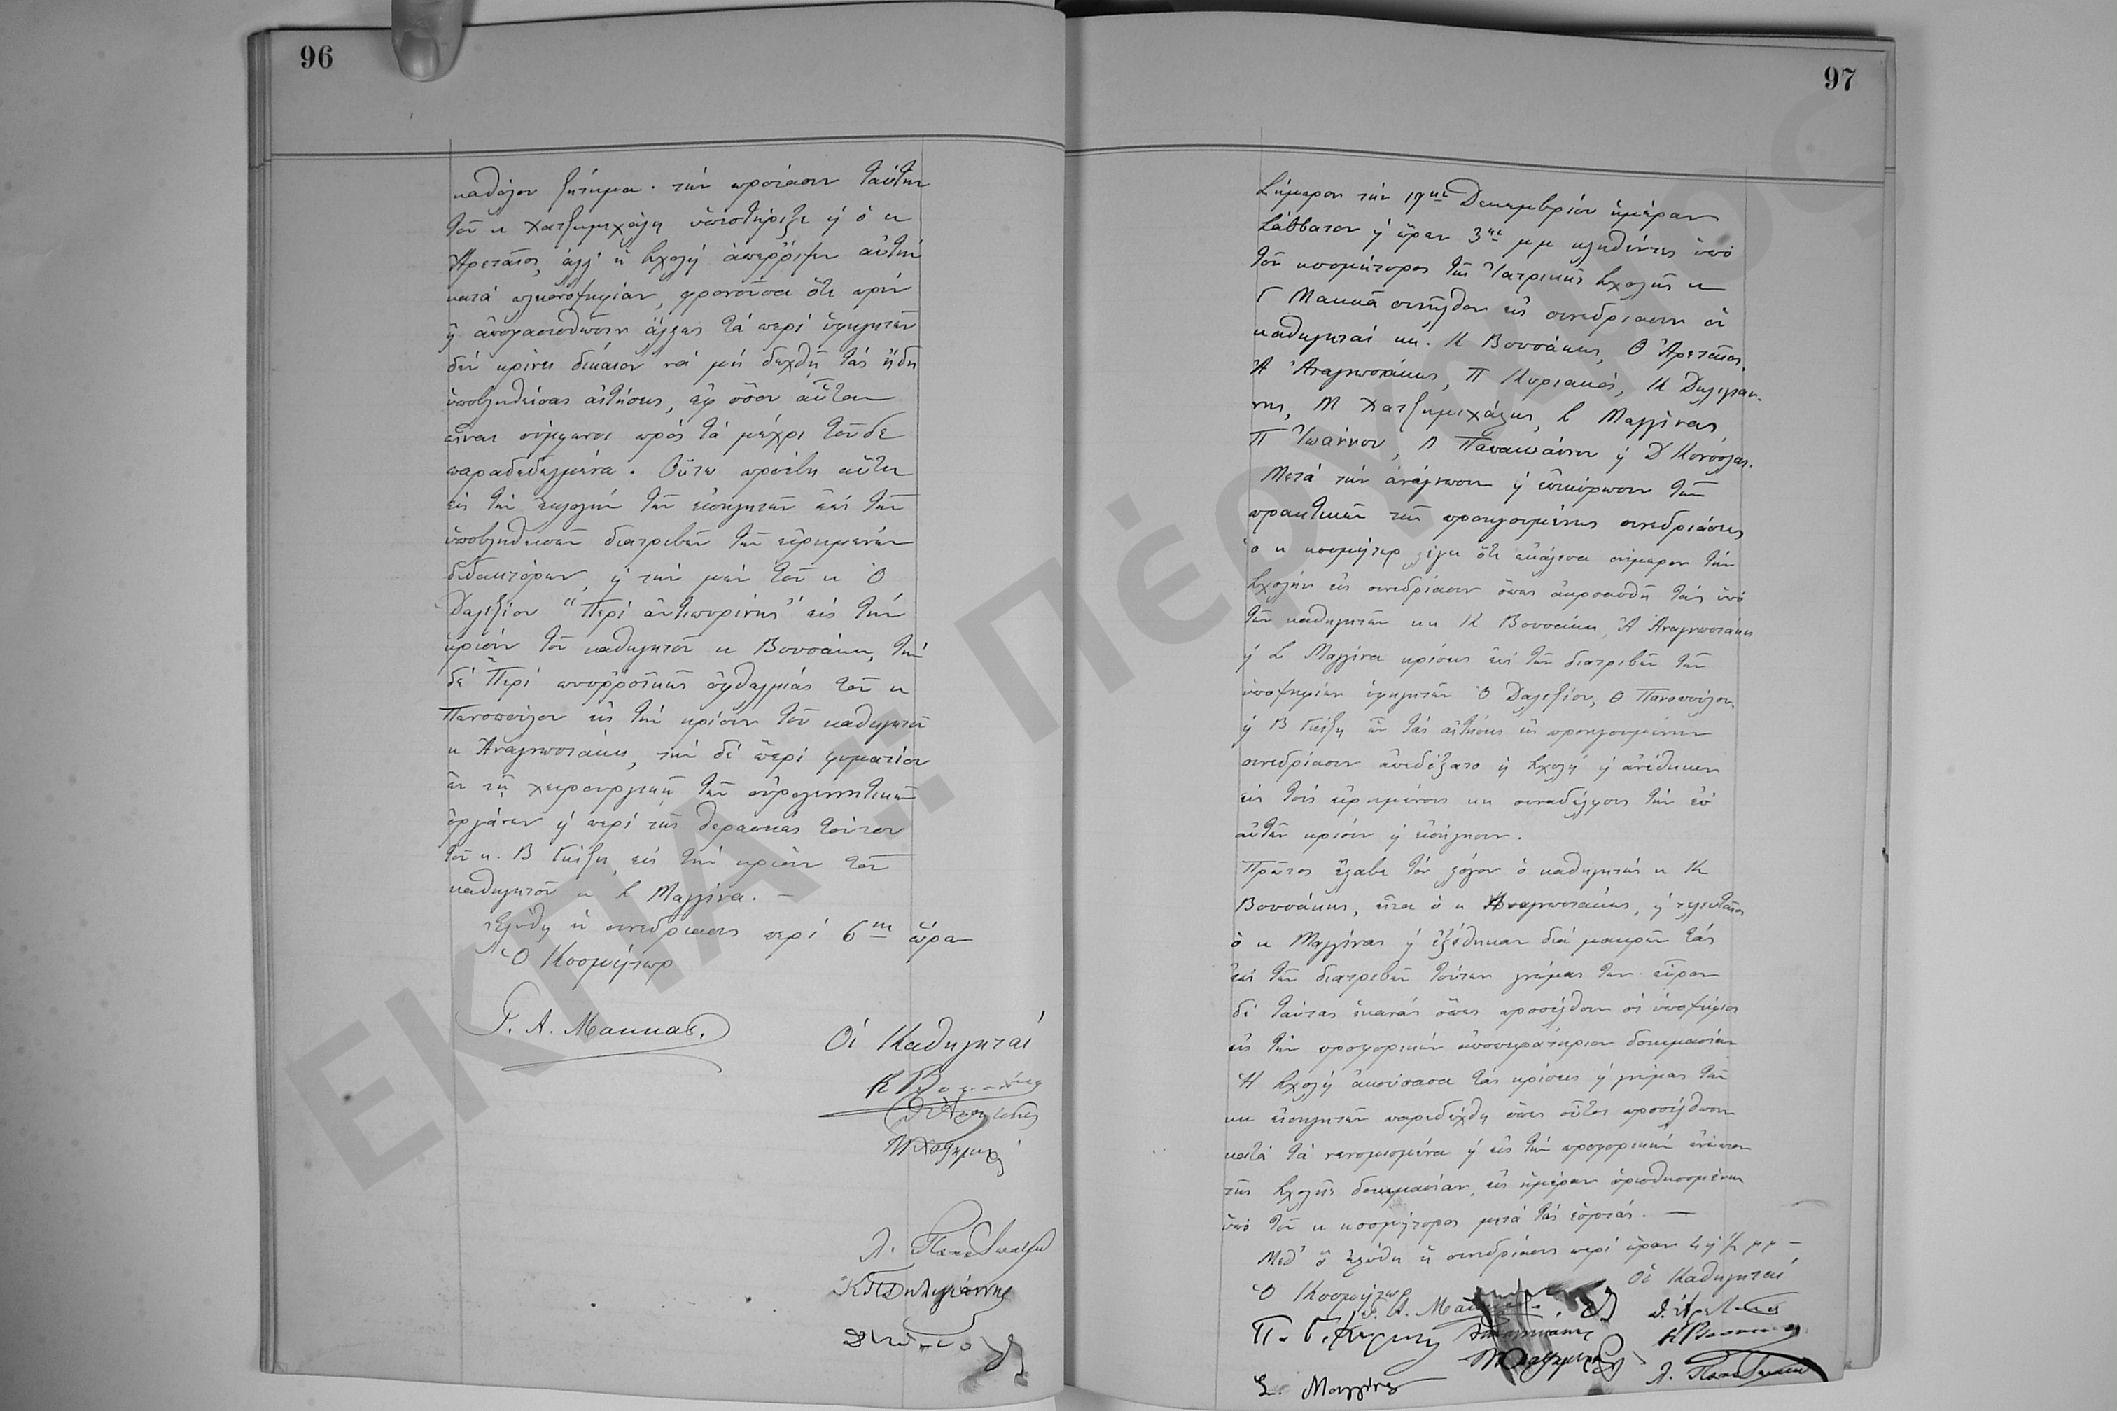 96
καθόλου ζήτημα. τὴν πρότασιν ταύτην
τοῦ κ Χατζημιχάλη ὑπεστήριξε ὁ κ
Ἀρεταῖος, ἀλλ' ἡ Σχολὴ ἀπέρριψεν αὐτὴν
κατὰ πλειονοψηφίαν, φρονοῦσα ὅτι πρὶν
ἢ ἀποφασισθῶσιν ἄλλως τὰ περὶ ὑφηγητῶν
δὲν κρίνει δίκαιον νὰ μὴ δεχθῇ τὰς ἤδη
ὑποβληθείσας αἰτήσεις, ἐφ' ὅσον αὗται
εἶναι σύμφωνοι πρὸς τὰ μέχρι τοῦδε
παραδεδεγμένα. Οὕτω προέβη αὕτη
εἰς τὴν ἐκλογὴν τῶν εἰσηγητῶν ἐπὶ τῶν
ὑποβληθεισῶν διατριβῶν τῶν εἰρημένων
διδακτόρων, τὴν μὲν τοῦ κ Ὀ
Δαλεζίου "Περὶ ἀντιπυρίνης" εἰς τὴν
κρίσιν τοῦ καθηγητοῦ κ Βουσάκη, τὴν
δὲ "Περὶ πυορροϊκῆς ὀφθαλμίας τοῦ κ
Πανοπούλου εἰς τὴν κρίσιν τοῦ καθηγητοῦ
κ Ἀναγνωστάκη, τὴν δὲ περὶ φυματίων
ἐν τῇ χειρουργικῇ τῶν οὐρογεννητικῶν
ὀργάνων καὶ περὶ τῆς θεραπείας τούτων
τοῦ κ. Β εἰς τὴν κρίσιν τοῦ
καθηγητοῦ κ Σ Μαγγίνα. —
Ἐλύθη ἡ συνεδρίασις περὶ 6ην ὥραν
Ὁ Κοσμήτωρ
Γ. Α. Μακκας.
Οἱ Καθηγηταὶ
Λ. Παπαϊωάννου
Κ Π Δηλιγιάννης
97
Σήμερον τὴν 19ην Δεκεμβρίου ἡμέραν
Σάββατον καὶ ὥραν 3ην μμ κληθέντες ὑπὸ
τοῦ κοσμήτορος τῆς Ἰατρικῆς Σχολῆς κ
Γ Μακκᾶ συνῆλθον εἰς συνεδρίασιν οἱ
καθηγηταὶ κκ. Κ Βουσάκης, Θ Ἀρεταῖος,
Ἀ Ἀναγνωστάκης, Π Κυριακός, Κ Δηλιγιάν-
νης, Μ Χατζημιχάλης, Σ Μαγγίνας,
Π Ἰωάννου, Λ Παπαϊωάννου καὶ Δ Κονσόλας.
Μετὰ τὴν ἀνάγνωσιν καὶ ἐπικύρωσιν τῶν
πρακτικῶν τῆς προηγουμένης συνεδριάσεως
ὁ κ κοσμήτωρ λέγει ὅτι ἐκάλεσα σήμερον τὴν
Σχολὴν εἰς συνεδρίασιν ὅπως ἀκροασθῇ τὰς ὑπὸ
τῶν καθηγητῶν κκ Κ Βουσάκη, Ἀ Ἀναγνωστάκη
καὶ Σ Μαγγίνα κρίσεις ἐπὶ τῶν διατριβῶν τῶν
ὑποψηφίων ὑφηγητῶν Ὀ Δαλεζίου, Θ Πανοπούλου,
καὶ Β ὧν τὰς αἰτήσεις εἰς προηγουμένην
συνεδρίασιν ἀπεδέξατο ἡ Σχολὴ καὶ ἀνέθηκεν
εἰς τοὺς εἰρημένους κκ συναδέλφους τὴν ἐπ'
αὐτῶν κρίσιν καὶ εἰσήγησιν.
Πρῶτος ἔλαβε τὸν λόγον ὁ καθηγητὴς κ Κ
Βουσάκης, εἶτα ὁ κ Ἀναγνωστάκης, καὶ τελευταῖος
ὁ κ Μαγγίνας καὶ ἐξέθηκαν διὰ μακρῶν τὰς
ἐπὶ τῶν διατριβῶν τούτων γνώμας των εὗρον
δὲ ταύτας ἱκανὰς ὅπως προσέλθωσιν οἱ ὑποψήφιοι
εἰς τὴν προφορικὴν δοκιμασίαν
Ἡ Σχολὴ ἀκούσασα τὰς κρίσεις καὶ γνώμας τῶν
κκ εἰσηγητῶν παρεδέχθη ὅπως οὗτοι προσέλθωσι
κατὰ τὰ νενομισμένα καὶ εἰς τὴν προφορικὴν ἐνώπιον
τῆς Σχολῆς δοκιμασίαν, εἰς ἡμέραν ὁρισθησομένην
ὑπὸ τοῦ κ κοσμήτορος μετὰ τὰς ἑορτάς. —
Μεθ' ὃ ἐλύθη ἡ συνεδρίασις περὶ ὥραν μμ —
Ὁ Κοσμήτωρ
Οἱ Καθηγηταὶ
Γ. Α. Μακκας.
Σ. Μαγγίνας
Λ. Παπαϊωάννου
ΕΚΠΑ : Πέργαμος